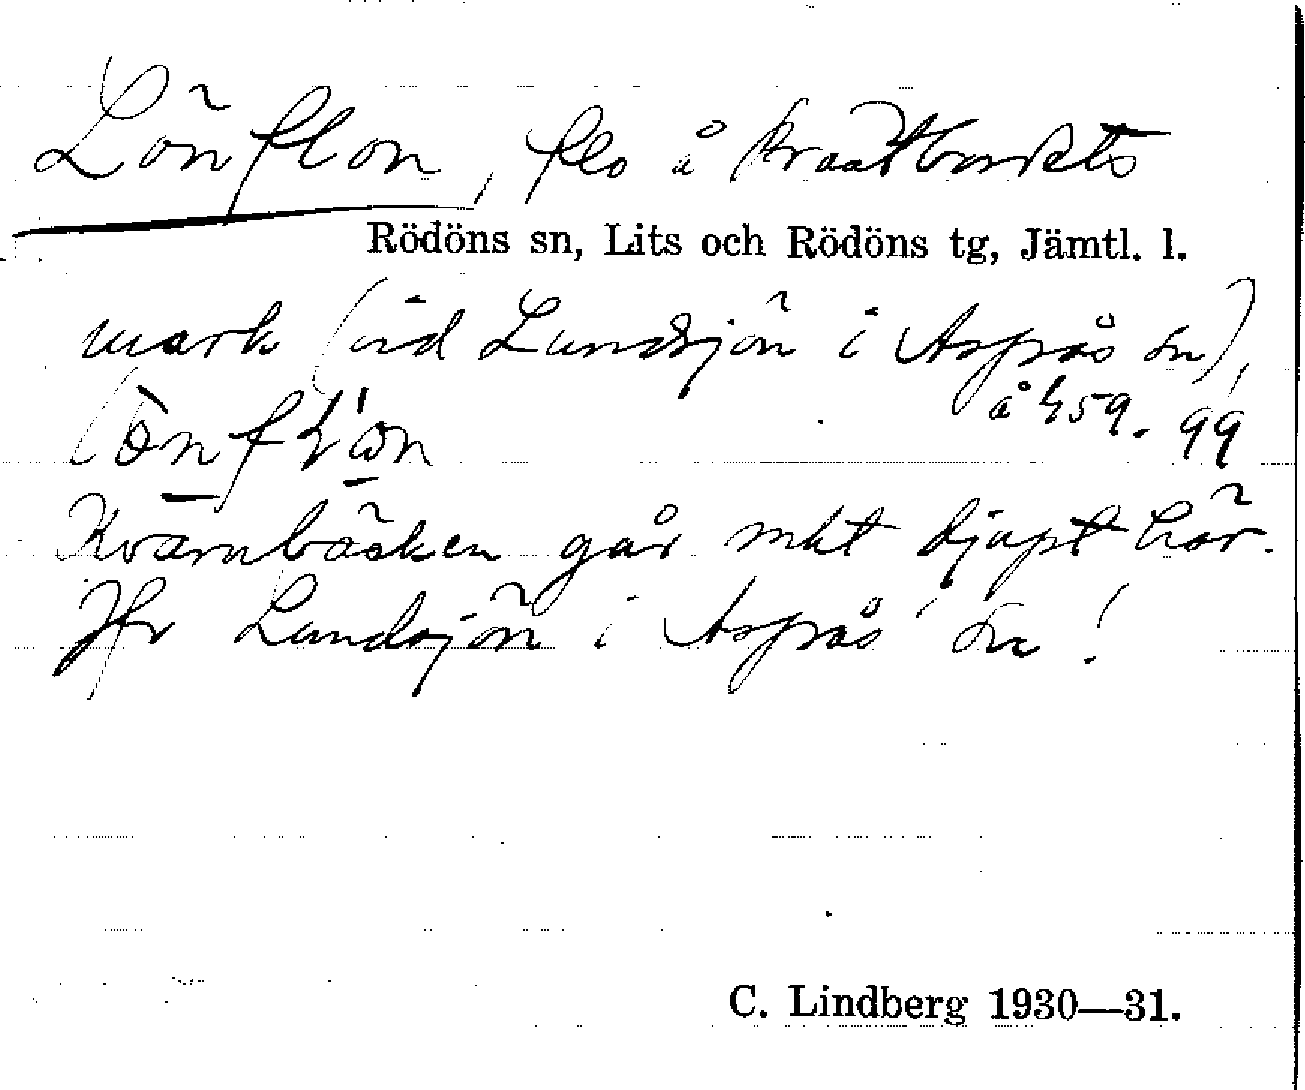 Lönflon, flo å Kraatbackets
Rödöns sn, Lits och Rödöns tg, Jämtl. l.
mark (vid Landsjön i Aspås sn),
å 459. 99
Kvarnbäcken går mkt djupt här.
Jfr Landsjön i Aspås sn!
C. Lindberg 1930—31.